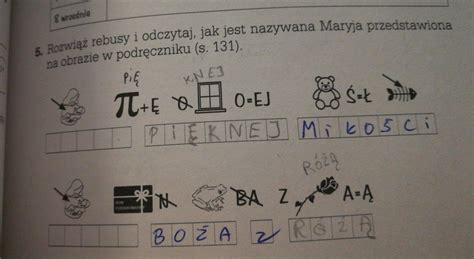 8 września
5. Rozwiąż rebusy i odczytaj, jak jest nazywana Maryja przedstawiona
na obrazie w podręczniku (s. 131).
PIĘ KNEJ
π+E O O=EJ Ś=Ł
PIĘKNEJ MiŁOŚCi
RÓŻĄ
N BA Z A=Ą
BOŻA z RÓŻĄ